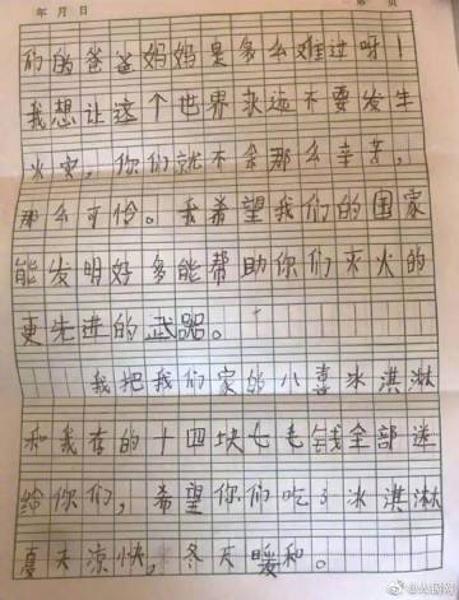 年 月 日 第 页
们的爸爸妈妈是多么难过呀！
我想让这个世界永远不要发生
火灾，你们就不会那么辛苦，
那么可怜。我希望我们的国家
能发明好多能帮助你们灭火的
更先进的武器。
我把我们家的小喜冰淇淋
和我存的十四块七毛钱全部送
给你们，希望你们吃了冰淇淋
夏天凉快，冬天暖和。